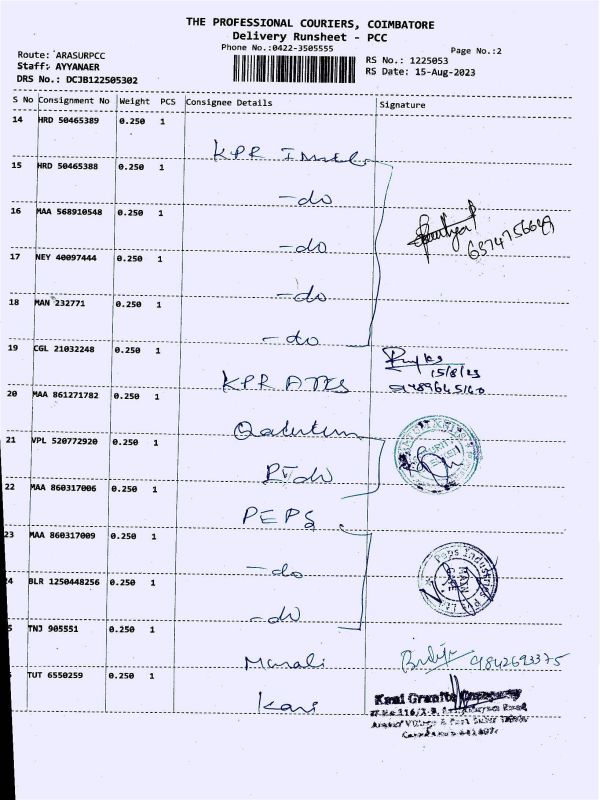 THE PROFESSIONAL COURIERS, COIMBATORE
Delivery Runsheet - PCC
Phone No.:0422-3505555
Page No.:2
Route: ARASURPCC
Staff: AYYANAER
DRS No.: DCJB122505302
RS No.: 1225053
RS Date: 15-Aug-2023
S No Consignment No Weight PCS Consignee Details Signature
14 HRD 50465389 0.250 1
KPR
15 HRD 50465388 0.250 1
-do
16 MAA 568910548 0.250 1
-do
6374756649
17 NEY 40097444 0.250 1
-do
18 MAN 232771 0.250 1
-do
19 CGL 21032248 0.250 1
15/8/23
KPR
20 MAA 861271782 0.250 1
21 VPL 520772920 0.250 1
do
22 MAA 860317006 0.250 1
PEPS
23 MAA 860317009 0.250 1
-do
Peps Industries Pvt Ltd
MAIN GATE
4 BLR 1250448256 0.250 1
-do
5 TNJ 905551 0.250 1
Murali
9842693375
TUT 6550259 0.250 1
Kani
Kani Granite Company